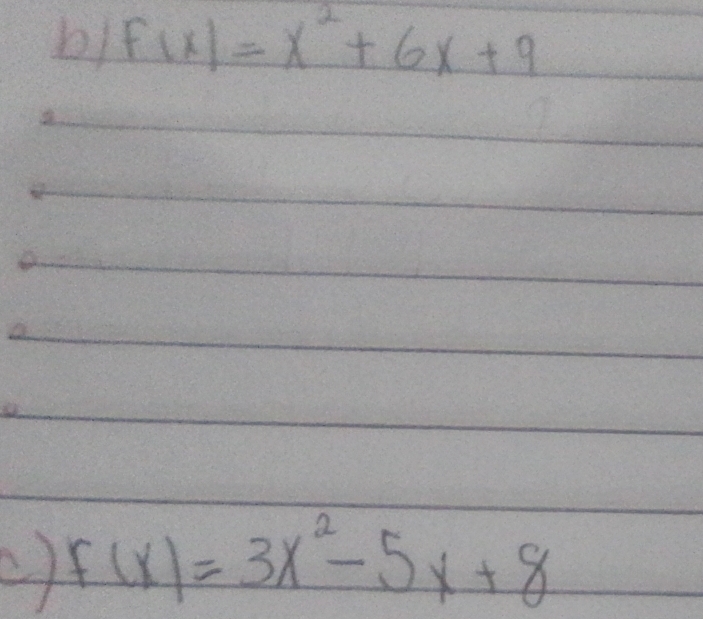 b) F(x) = x² + 6x + 9
c) F(x) = 3x² - 5x + 8